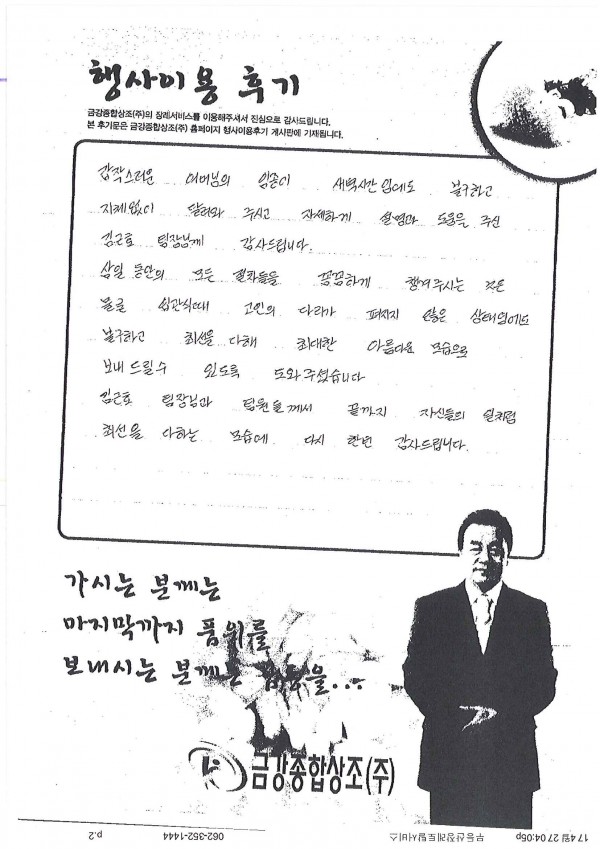 행사이용 후기
금강종합상조(주)의 장례서비스를 이용해주셔서 진심으로 감사드립니다.
본 후기문은 금강종합상조(주) 홈페이지 행사이용후기 게시판에 기재됩니다.
갑작스러운 어머님의 임종이 새벽시간임에도 불구하고
지체없이 달려와 주시고 자세하게 설명과 도움을 주신
김근호 팀장님께 감사드립니다.
삼일 동안의 모든 절차들을 꼼꼼하게 챙겨주시는 것은
물론 입관식때 고인의 다리가 펴지지 않은 상태임에도
불구하고 최선을 다해 최대한 아름다운 모습으로
보내 드릴수 있도록 도와주셨습니다
김근호 팀장님과 팀원들께서 끝까지 자신들의 일처럼
최선을 다하는 모습에 다시 한번 감사드립니다.
가시는 분께는
마지막까지 품위를
보내시는 분께는 감동을...
금강종합상조(주)
17 4월 27 04:05p 무등산장례토탈서비스 062-352-1444 p.2